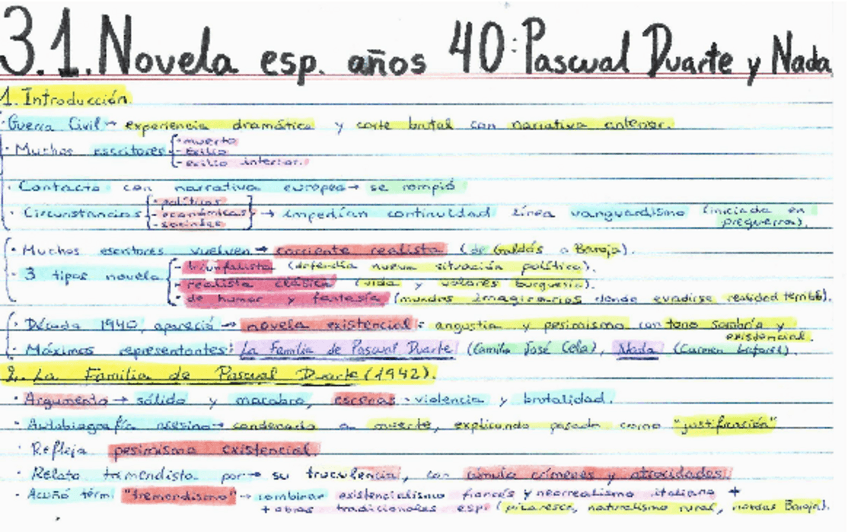 3.1. Novela esp. años 40: Pascual Duarte y Nada
1. Introducción.
· Guerra Civil → experiencia dramática y corte brutal con narrativa anterior.
· Muchos escritores { - muerte
- exilio
- exilio interior.
· Contacto con narrativa europea → se rompió
· Circunstancias { - políticas
- económicas } → impedían continuidad línea vanguardismo (iniciada en
- sociales preguerra).
· Muchos escritores vuelven → corriente realista (de Galdós a Baroja).
· 3 tipos novela { - triunfalista (defendía nueva situación política).
- realista clásica (vida y valores burguesía).
- de humor y fantasía (mundos imaginarios donde evadirse realidad terrible).
· Década 1940, apareció → novela existencial: angustia y pesimismo con tono sombrío y
existencial.
· Máximos representantes: La Familia de Pascual Duarte (Camilo José Cela), Nada (Carmen Laforet).
2. La Familia de Pascual Duarte (1942).
· Argumento → sólido y macabro, escenas · violencia y brutalidad.
· Autobiografía asesino → condenado a muerte, explicando pasado como "justificación"
· Refleja pesimismo existencial.
· Relato tremendista por → su truculencia, con cúmulo crímenes y atrocidades.
· Acuñó térm. "tremendismo" → combinar existencialismo francés y neorrealismo italiano +
+ obras tradicionales esp. (picaresca, naturalismo rural, novelas Baroja).